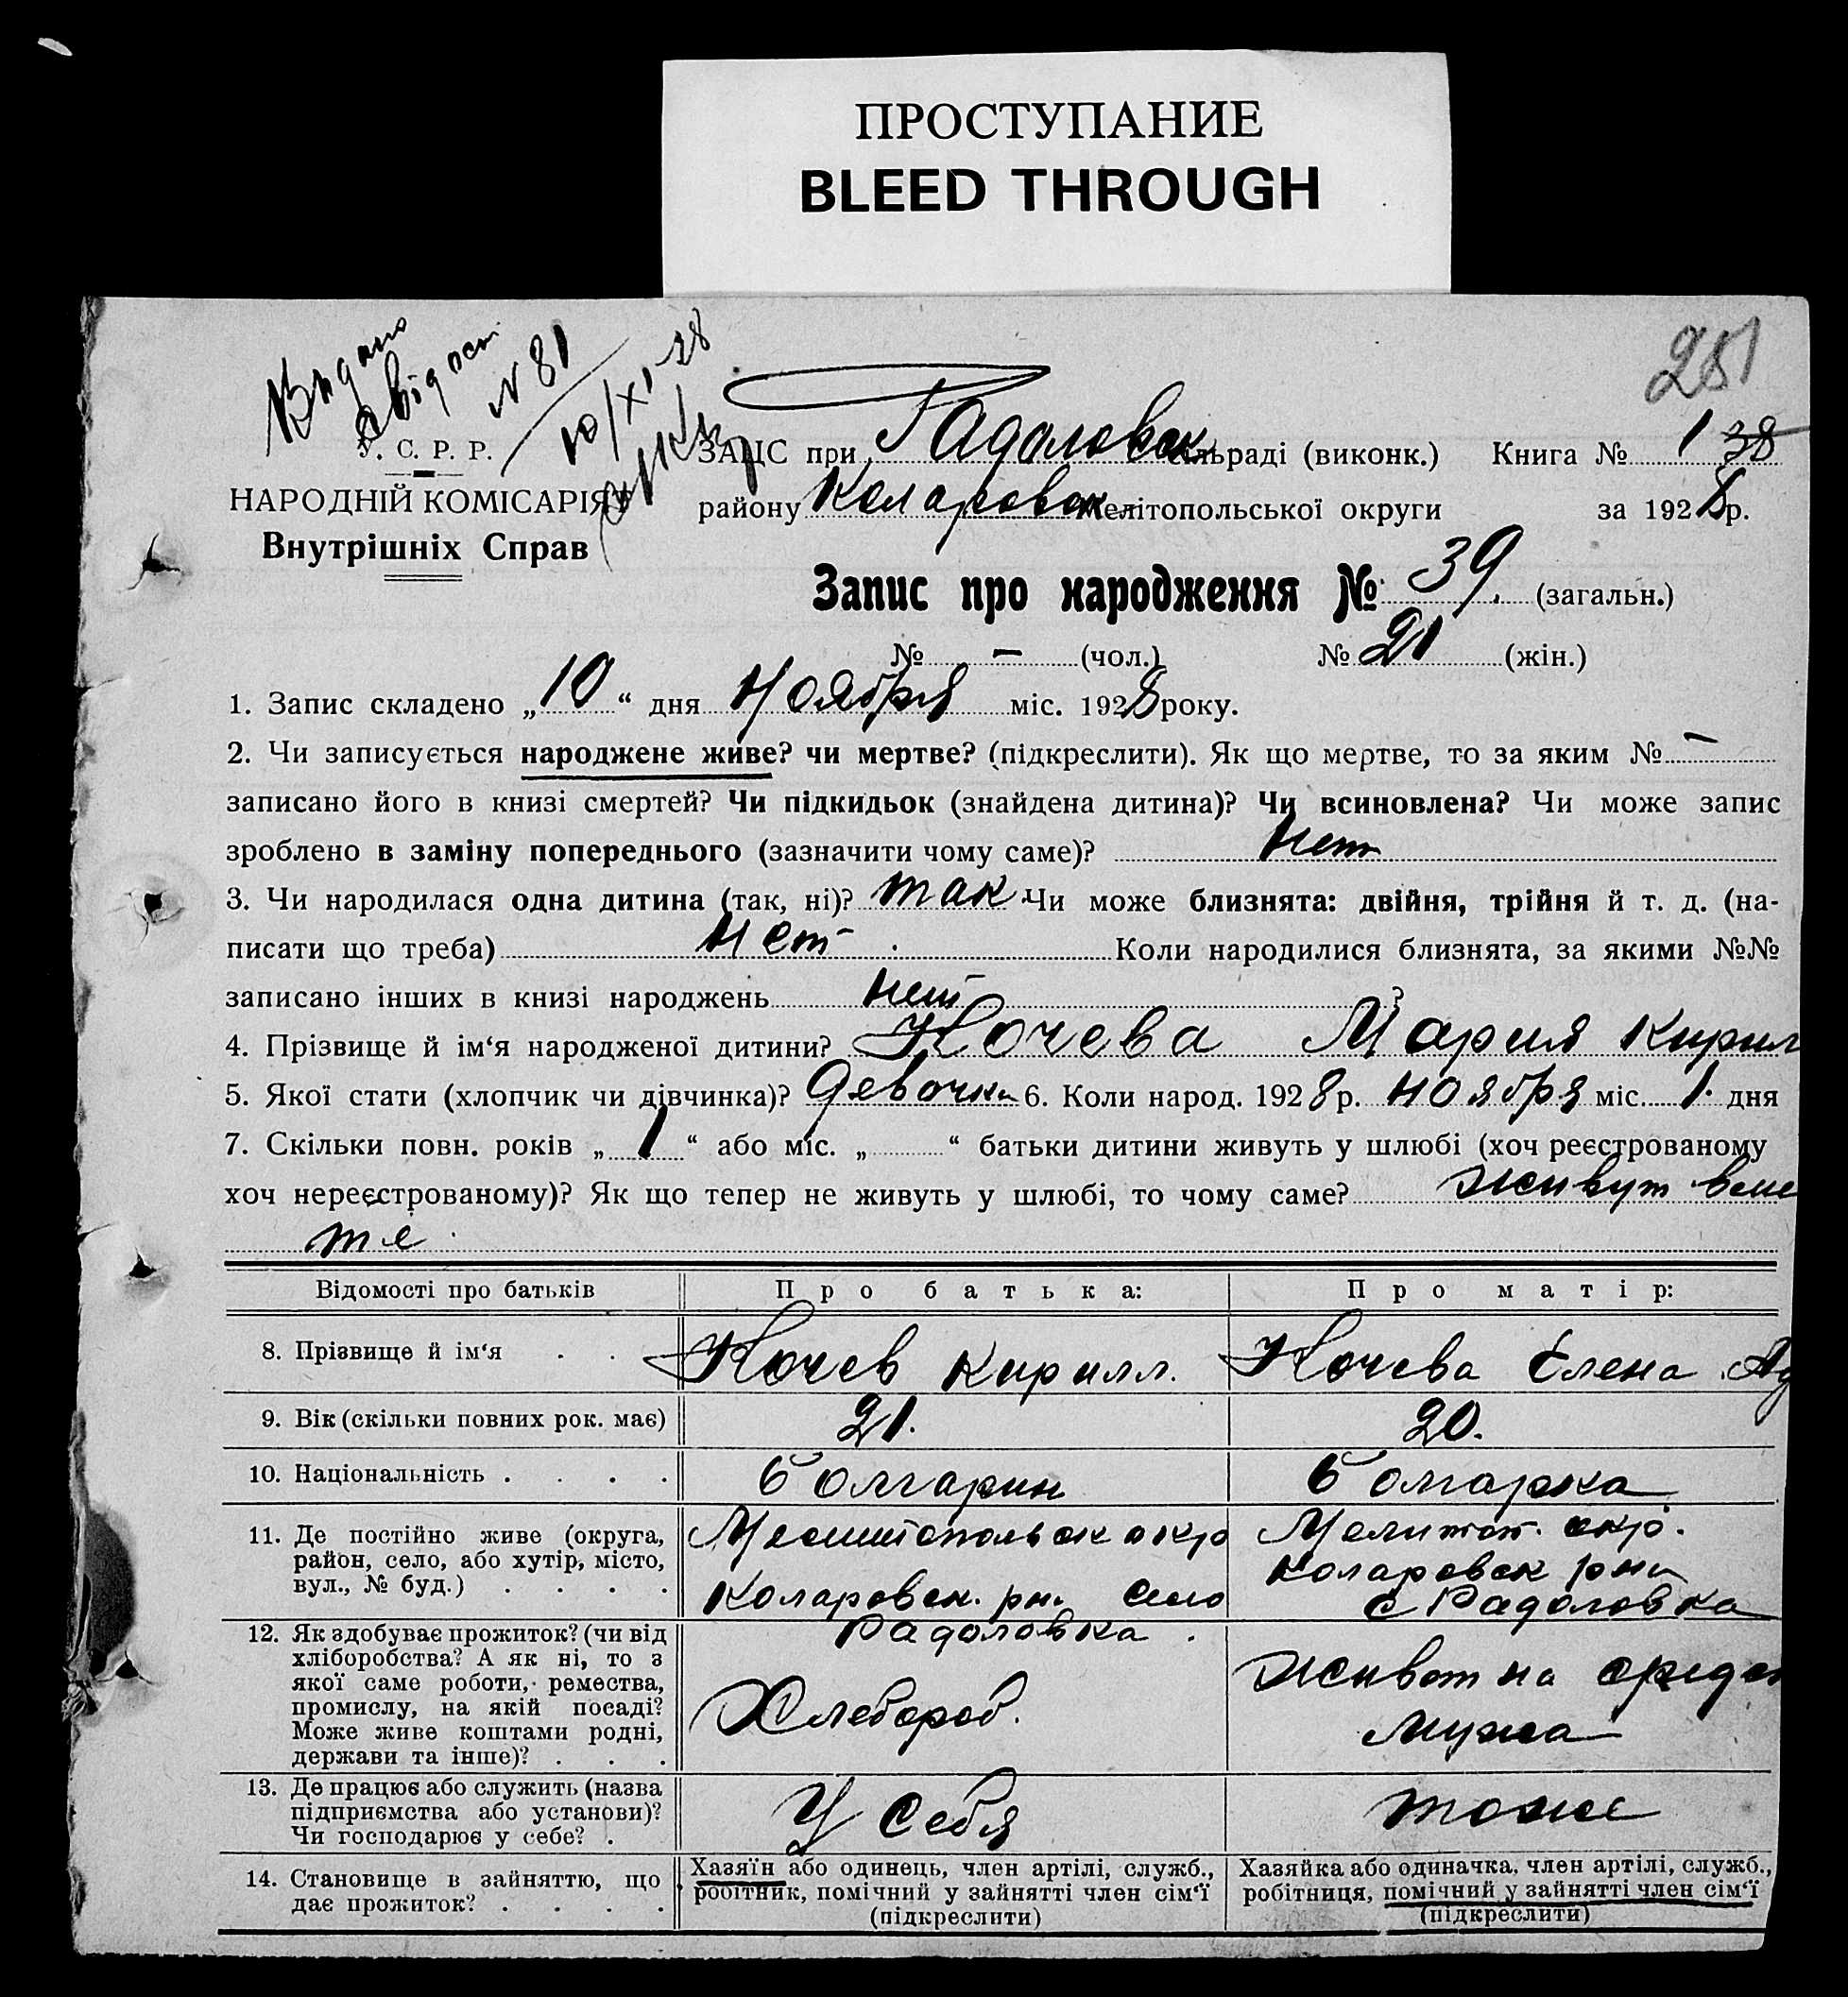 ПРОСТУПАНИЕ
BLEED THROUGH
Видано
свідост
N 81
10/XI-28
251
У. С. Р. Р.
НАРОДНІЙ КОМІСАРІЯТ
Внутрішніх Справ
ЗАЦС при Радоловск сільраді (виконк.) Книга № 1 38
району Коларовск Мелітопольської округи за 1928 р.
Запис про народження № 39 (загальн.)
№ — (чол.) № 21 (жін.)
1. Запис складено „10“ дня Ноября міс. 1928 року.
2. Чи записується народжене живе? чи мертве? (підкреслити). Як що мертве, то за яким № —
записано його в книзі смертей? Чи підкидьок (знайдена дитина)? Чи всиновлена? Чи може запис
зроблено в заміну попереднього (зазначити чому саме)? Нет
3. Чи народилася одна дитина (так, ні)? так Чи може близнята: двійня, трійня й т. д. (на-
писати що треба) Нет Коли народилися близнята, за якими №№
записано інших в книзі народжень нет ?
4. Прізвище й ім‘я народженої дитини? Кочева Мария Кирил
5. Якої стати (хлопчик чи дівчинка)? Девочка 6. Коли народ. 1928 р. ноября міс. 1. дня
7. Скільки повн. років „1“ або міс. „ “ батьки дитини живуть у шлюбі (хоч реєстрованому
хоч нереєстрованому)? Як що тепер не живуть у шлюбі, то чому саме? живут вмес
те
Відомості про батьків Про батька: Про матір:
8. Прізвище й ім‘я . . Кочев Кирилл. Кочева Елена Ад
9. Вік (скільки повних рок. має) 21. 20.
10. Національність . . . . болгарин болгарка
11. Де постійно живе (округа,
район, село, або хутір, місто,
вул., № буд.) . . . .
Мелитопольск окр
Коларовск. рн. село
Радоловка.
Мелитоп. окр.
коларовск рн
с Радоловка
12. Як здобуває прожиток? (чи від
хліборобства? А як ні, то з
якої саме роботи, ремества,
промислу, на якій посаді?
Може живе коштами родні,
держави та інше)? . . .
Хлебороб.
живет на средс
мужа
13. Де працює або служить (назва
підприємства або установи)?
Чи господарює у себе? .
У себя
тоже
14. Становище в зайняттю, що
дає прожиток? . . . .
Хазяїн або одинець, член артілі, служб.,
робітник, помічний у зайнятті член сім‘ї
(підкреслити)
Хазяйка або одиначка, член артілі, служб.,
робітниця, помічний у зайнятті член сім‘ї
(підкреслити)